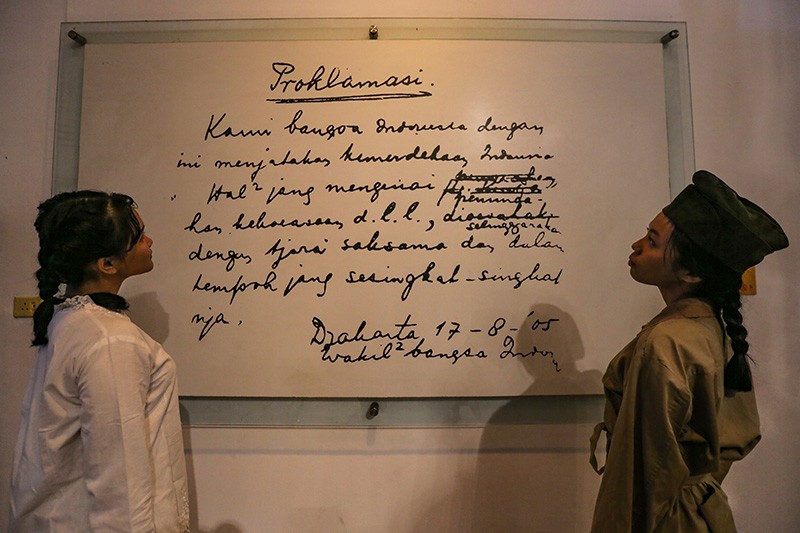 Proklamasi.
Kami bangsa Indonesia dengan
ini menjatakan kemerdekaan Indonesia
Hal² jang mengenai
peminda-
han kekoeasaan d.l.l.,
diselenggarakan
dengan tjara saksama dan dalam
tempoh jang sesingkat-singkat
nja.
Djakarta 17-8-'05
Wakil² bangsa Indon